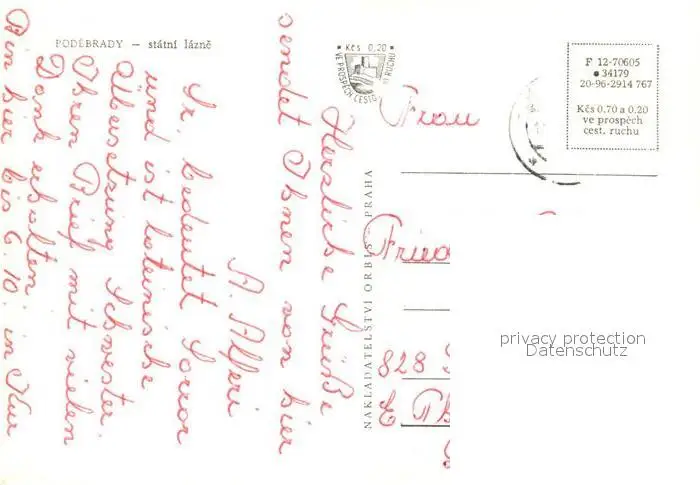 PODĚBRADY — státní lázně
Herzliche Grüße
sendet Ihnen vom hier
A. Alferi
Sr. bedeutet Soror
und ist lateinische
Übersetzung Schwester.
Ihren Brief mit vielen
Dank erhalten.
Bin hier bis 6.10. in Kur
Kčs 0,20
VE PROSPĚCH CESTOV. RUCHU
NAKLADATELSTVÍ ORBIS PRAHA
F 12-70605
34179
20-96-2914 767
Kčs 0.70 a 0.20
ve prospěch
cest. ruchu
Frau
828
privacy protection
Datenschutz